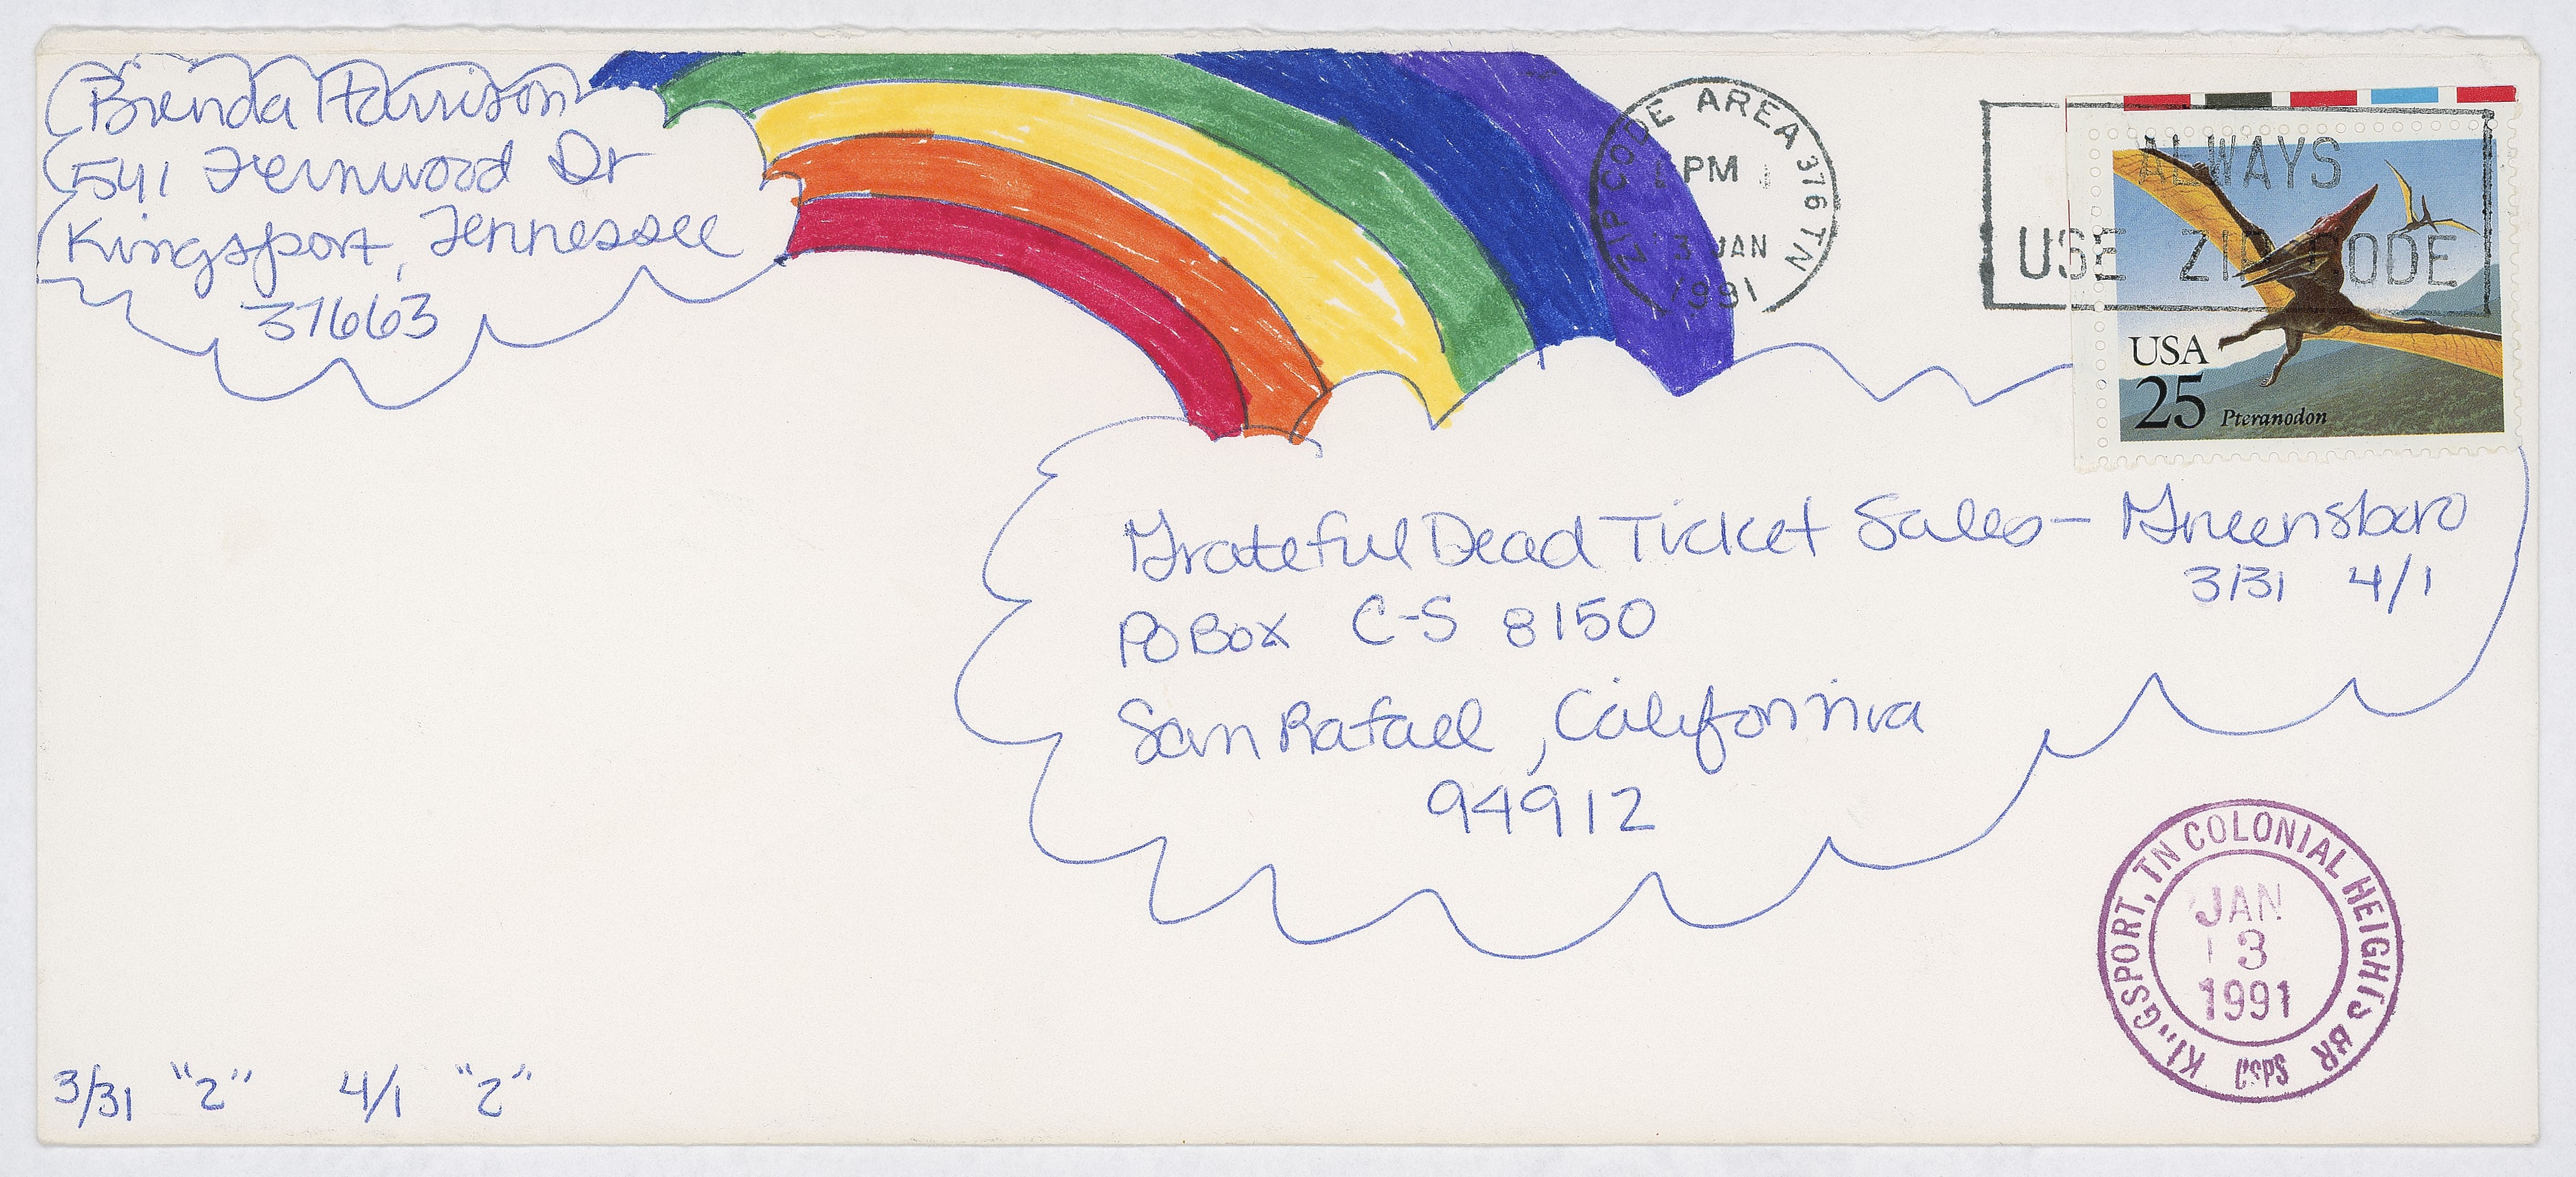 Brenda Harrison
541 Fernwood Dr
Kingsport, Tennessee
37663
ZIP CODE AREA 376 TN
PM
3 JAN
1991
ALWAYS
USE ZIP CODE
USA
25 Pteranodon
Grateful Dead Ticket Sales - Greensboro
3/31 4/1
PO Box C-S 8150
San Rafael, California
94912
KINGSPORT, TN COLONIAL HEIGHTS BR
JAN
3
1991
USPS
3/31 "2" 4/1 "2"